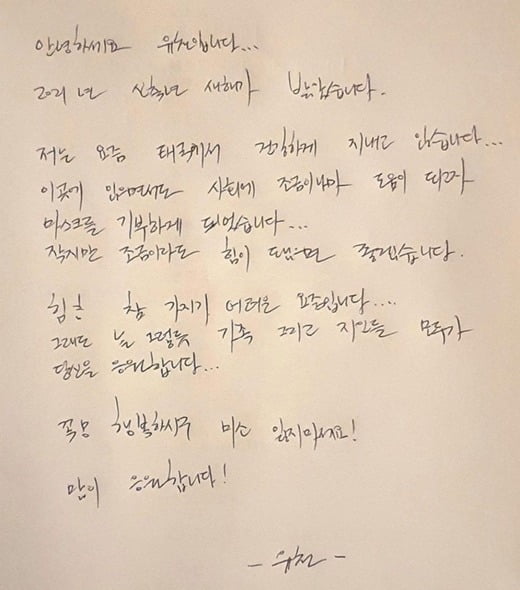 안녕하세요 유천입니다...
2021년 신축년 새해가 밝았습니다.
저는 요즘 태국에서 건강하게 지내고 있습니다...
이곳에 있으면서도 사회에 조금이나마 도움이 되고자
마스크를 기부하게 되었습니다...
작지만 조금이라도 힘이 됐으면 좋겠습니다.
힘찬 참 가지기 어려운 요즘입니다....
그래도 늘 그렇듯 가족 그리고 지인들 모두가
당신을 응원합니다...
꼭 행복하시구 미소 잃지마세요!
많이 응원합니다!
- 유천 -